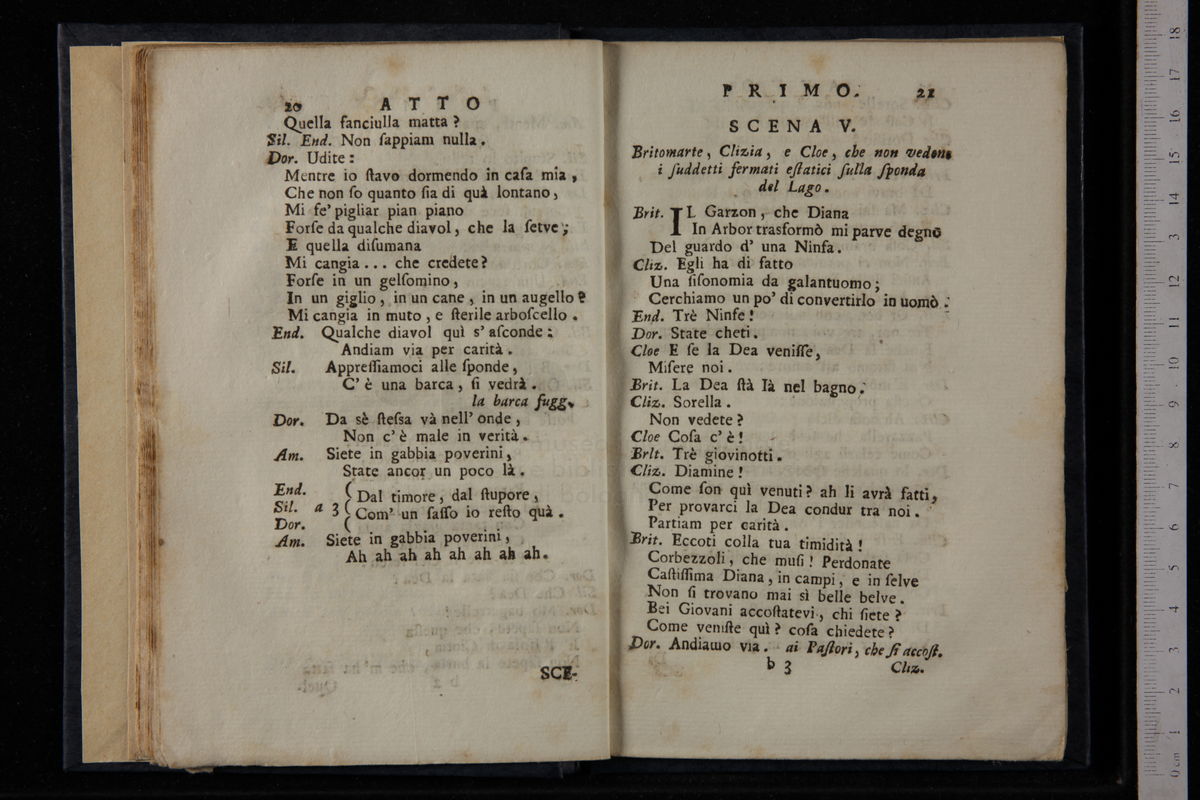 20 ATTO
Quella fanciulla matta?
Sil. End. Non ſappiam nulla.
Dor. Udite:
Mentre io ſtavo dormendo in caſa mia,
Che non ſo quanto ſia di quà lontano,
Mi fe' pigliar pian piano
Forſe da qualche diavol, che la ſerve;
E quella diſumana
Mi cangia... che credete?
Forſe in un gelſomino,
In un giglio, in un cane, in un augello?
Mi cangia in muto, e ſterile arboſcello.
End. Qualche diavol quì s' aſconde:
Andiam via per carità.
Sil. Appreſſiamoci alle ſponde,
C' è una barca, ſi vedrà.
la barca fugg.
Dor. Da sè ſteſsa và nell' onde,
Non c' è male in verità.
Am. Siete in gabbia poverini,
State ancor un poco là.
End.
Sil. a 3 ( Dal timore, dal ſtupore,
Dor. ( Com' un ſaſſo io reſto quà.
Am. Siete in gabbia poverini,
Ah ah ah ah ah ah ah ah.
SCE-
PRIMO. 21
SCENA V.
Britomarte, Clizia, e Cloe, che non vedono
i ſuddetti fermati eſtatici ſulla ſponda
del Lago.
Brit. IL Garzon, che Diana
In Arbor trasformò mi parve degno
Del guardo d' una Ninfa.
Cliz. Egli ha di fatto
Una fiſonomia da galantuomo;
Cerchiamo un po' di convertirlo in uomò.
End. Trè Ninfe!
Dor. State cheti.
Cloe E ſe la Dea veniſſe,
Miſere noi.
Brit. La Dea ſtà là nel bagno.
Cliz. Sorella.
Non vedete?
Cloe Coſa c' è!
Brit. Trè giovinotti.
Cliz. Diamine!
Come ſon quì venuti? ah li avrà fatti,
Per provarci la Dea condur tra noi.
Partiam per carità.
Brit. Eccoti colla tua timidità!
Corbezzoli, che muſi! Perdonate
Caſtiſſima Diana, in campi, e in ſelve
Non ſi trovano mai sì belle belve.
Bei Giovani accoſtatevi, chi ſiete?
Come veniſte quì? coſa chiedete?
Dor. Andiamo via. ai Paſtori, che ſi accoſt.
b 3 Cliz.